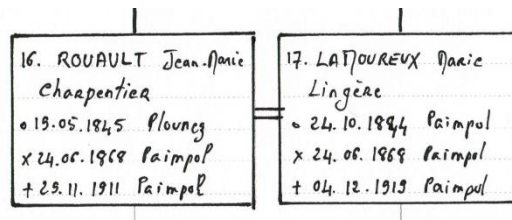 16. ROUAULT Jean-Marie
Charpentier
o 15.05.1845 Plouneg
x 24.06.1868 Paimpol
+ 29.11.1911 Paimpol
17. LAMOUREUX Marie
Lingère
o 24.10.1844 Paimpol
x 24.06.1868 Paimpol
+ 04.12.1919 Paimpol